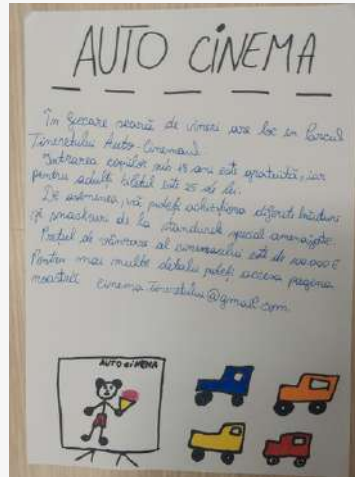 AUTO CINEMA
În fiecare seară de vineri are loc în Parcul
Tineretului Auto-Cinemaul.
Intrarea copiilor sub 18 ani este gratuită, iar
pentru adulți biletul este 25 de lei.
De asemenea, vă puteți achiziționa diferite băuturi
și snackuri de la standurile special amenajate.
Prețul de vânzare al cinemaului este de 200.000 €
Pentru mai multe detalii puteți accesa pagina
noastră cinema.tineretului@gmail.com
AUTO CINEMA